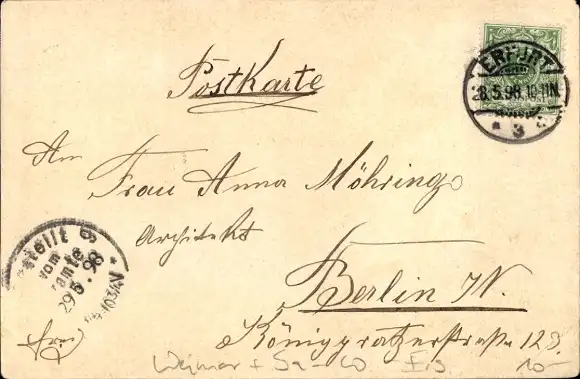 Postkarte
ERFURT
8.5.98.10-11N.
* 3
An
Frau Anna Möhring
Architekt
Berlin W.
Königgrätzerstraße 128.
stellt
vom
amte
29 5. 98
frei
Weimar +
10-